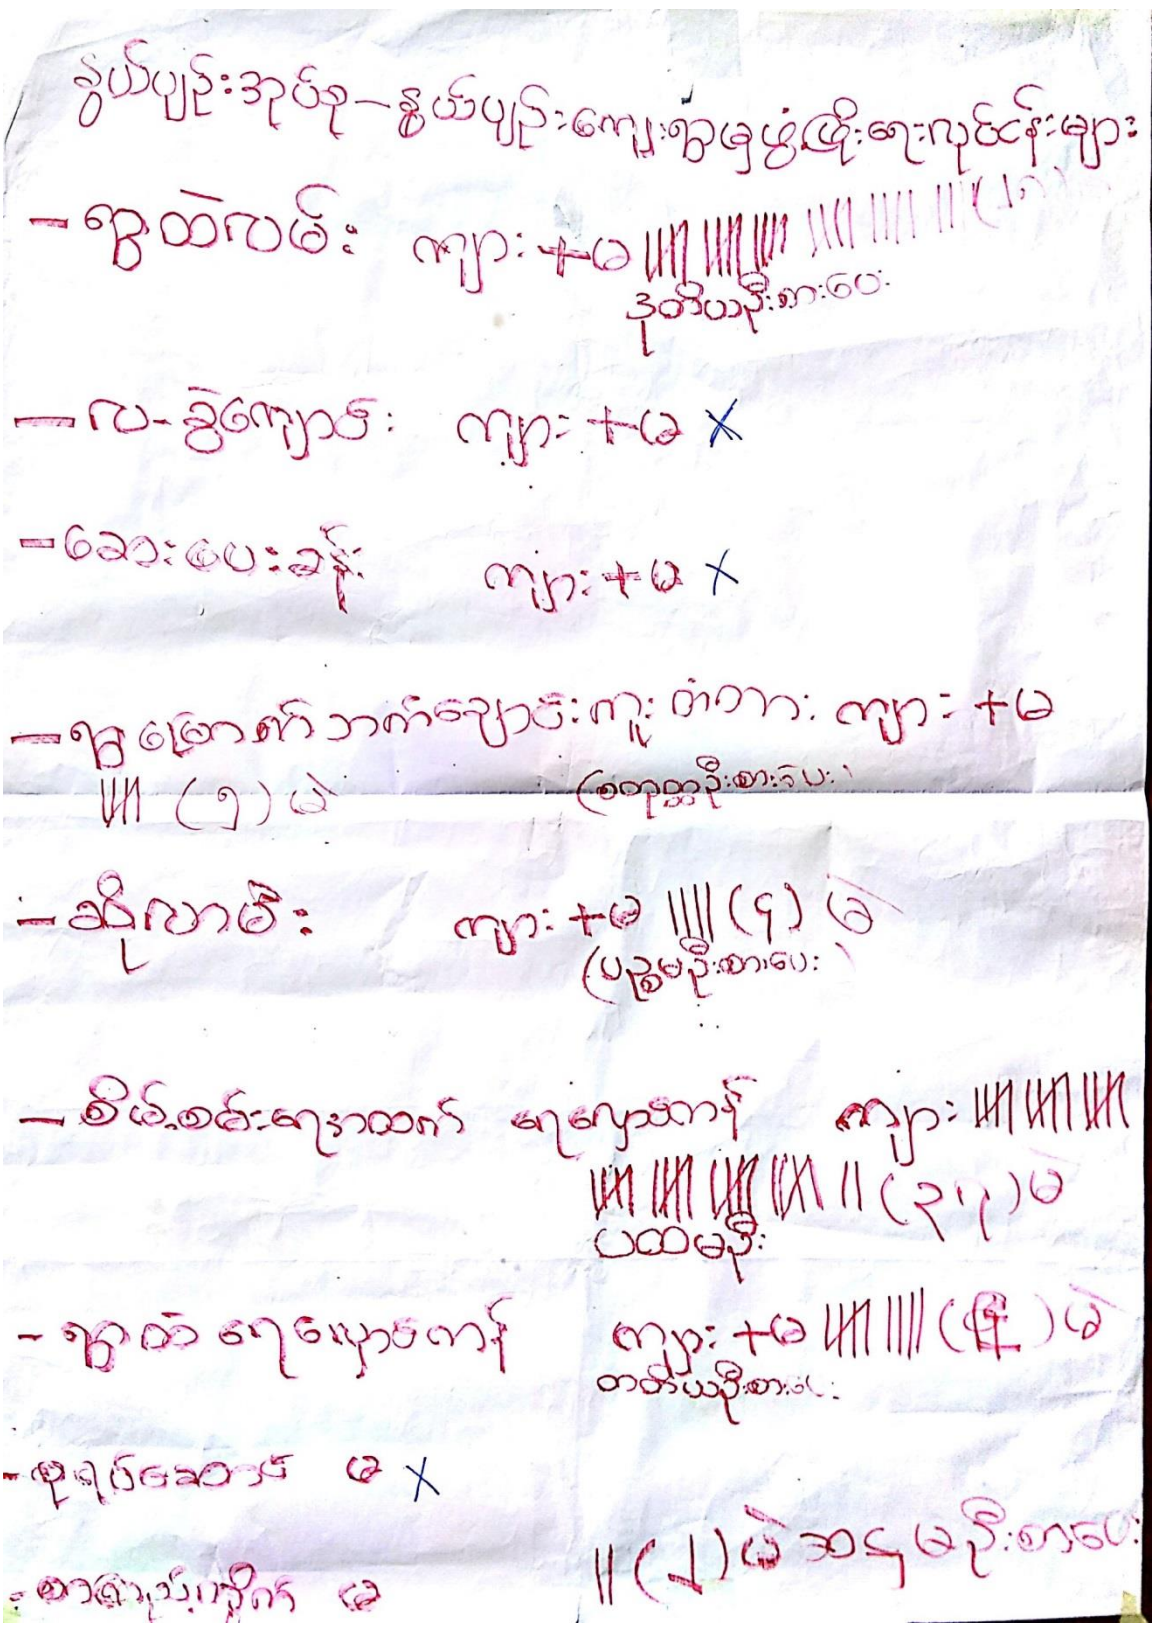 နွယ်ပျဉ်းအုပ်စု – နွယ်ပျဉ်းကျေးရွာမှဖွံ့ဖြိုးရေးလုပ်ငန်းများ
- ရွာထဲလမ်း ကျား + မ
ဒုတိယဦးစားပေး
- လ-ခွဲကျောင်း ကျား + မ X
- ဆေးပေးခန်း ကျား + မ X
- ရွာမြောက်ဘက်ချောင်းကူးတံတား ကျား + မ
(၅) မဲ (စတုတ္ထဦးစားပေး)
- ဆိုလာမီး ကျား + မ |||| (၄) မဲ
(ပဉ္စမဦးစားပေး)
- စိမ့်စမ်းရေအထက် ရေလှောင်ကန် ကျား
|| (၃၇) မဲ
ပထမဦး
- ရွာထဲ ရေလှောင်ကန် ကျား + မ မဲ
တတိယဦးစားပေး
- စုရပ်ဆောင် မ X
|| (၂) မဲ ဆဌမဦးစားပေး
- စာကြည့်တိုက် မ